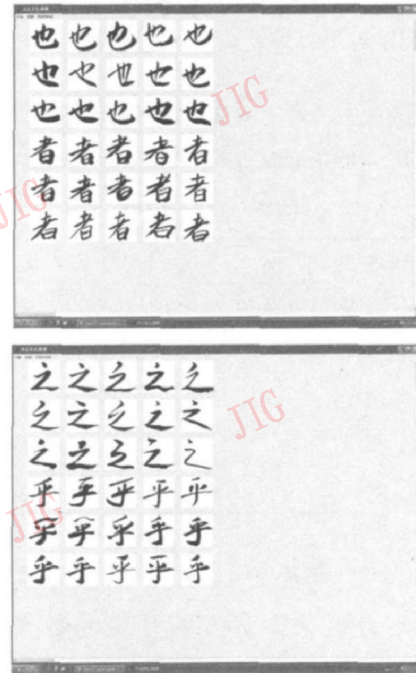 也也也也也
也也也也也
也也也也也
者者者者者
者者者者者
者者者者者
JIG
JIG
之之之之之
之之之之之
之之之之之
乎乎乎乎乎
乎乎乎乎乎
乎乎乎乎乎
JIG
JIG